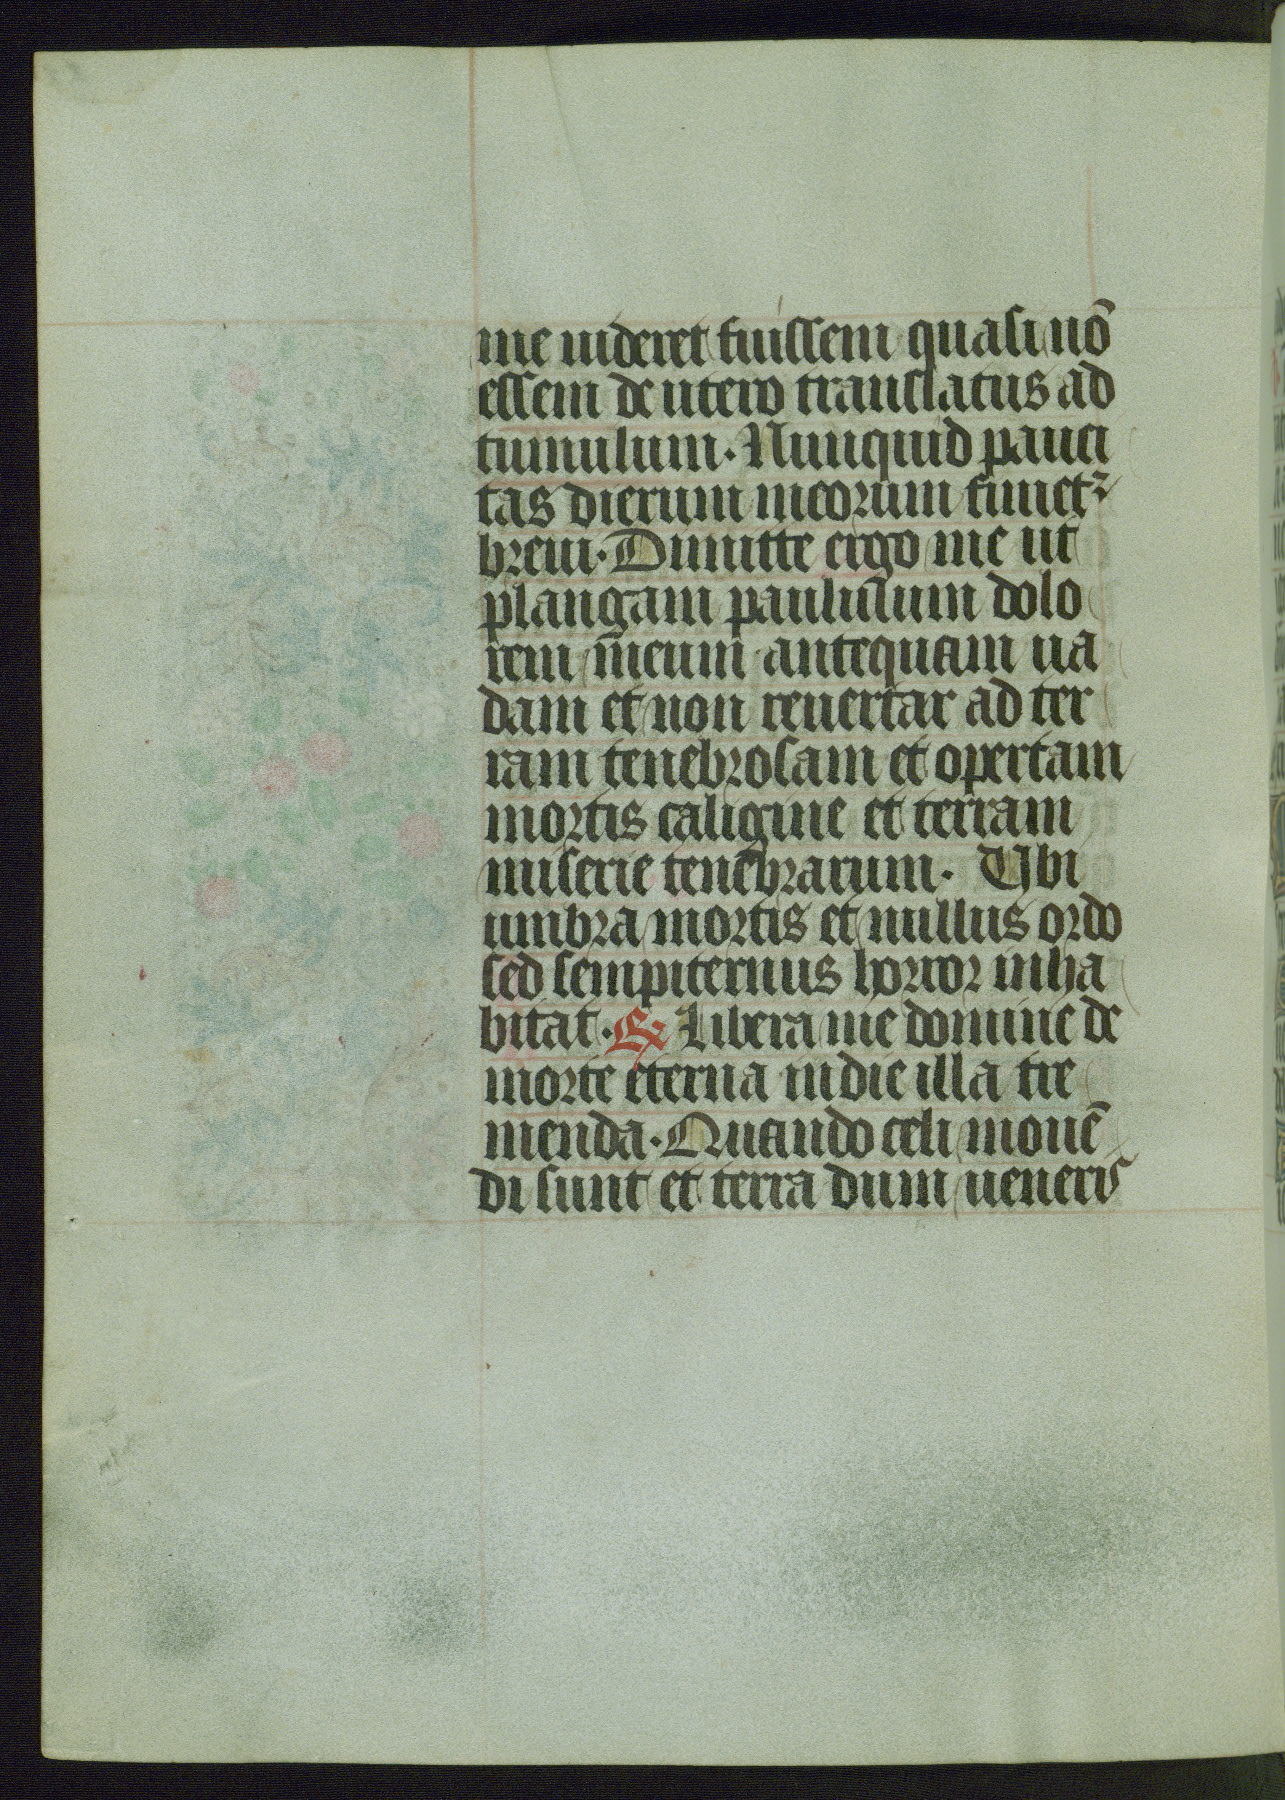 me uideret fuissem quasi nō
essem de utero translatus ad
tumulum. Nunquid pauci
tas dierum meorum finietꝛ
breui. Dimitte ergo me ut
plangam paululum dolo
rem meum antequam ua
dam et non reuertar ad ter
ram tenebrosam et opertam
mortis caligine et terram
miserie tenebrarum. Ubi
umbra mortis et nullus ordo
sed sempiternus horror inha
bitat. ℟ Libera me domine de
morte eterna in die illa tre
menda. Quando celi mouē
di sunt et terra dum ueneris